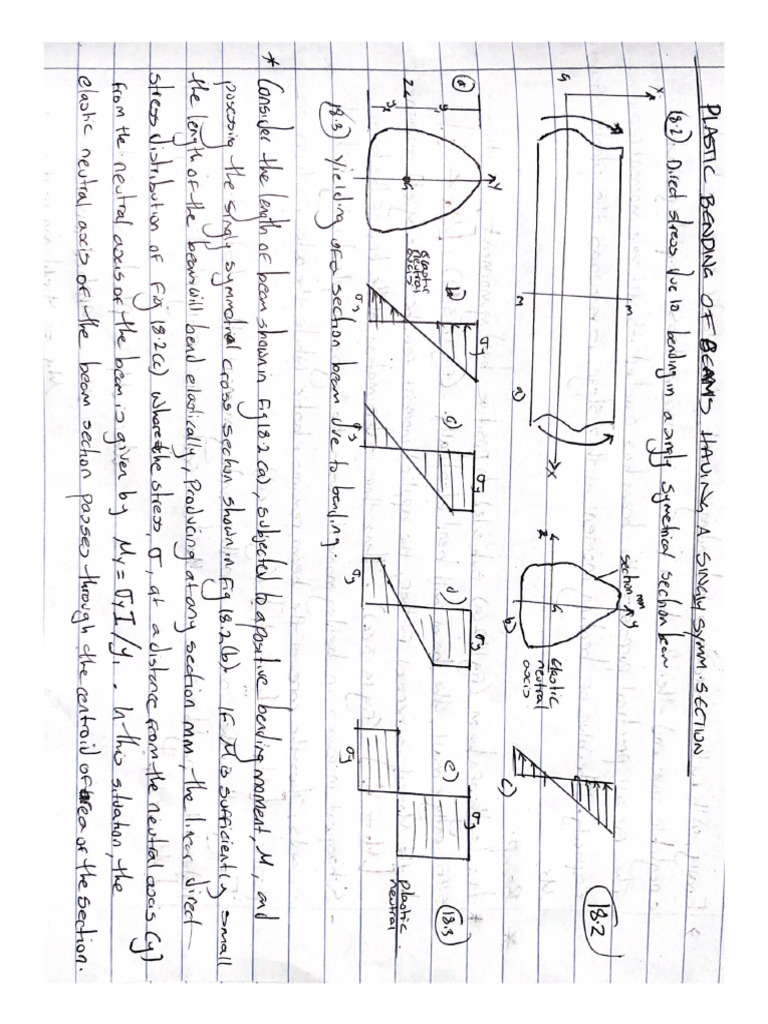 PLASTIC BENDING OF BEAMS HAVING A SINGLY SYMM. SECTION
(18.2) Direct stress due to bending in a singly symetrical section beam
Y
G
M
M
X
a)
section mm
Y
Z
G
elastic neutral axis
b)
c)
18.2
a)
Y
Z
G
y1
y2
elastic neutral axis
b)
σy
c)
σy
d)
σy
σy
e)
σy
σy
plastic neutral
18.3
(18.3) yielding of a section beam due to bending.
* Consider the length of beam shown in Fig 18.2 (a), subjected to a positive bending moment, M, and
possessing the singly symmetrical cross section shown in Fig 18.2(b). If M is sufficiently small
the length of the beam will bend elastically, Producing at any section mm, the linear direct
stress distribution of fig 18.2(c) where the stress, σ, at a distance from the neutral axis (y)
from the neutral axis of the beam is given by My = σy I / y1. In this situation, the
elastic neutral axis of the beam section passes through the centroid of area of the section.